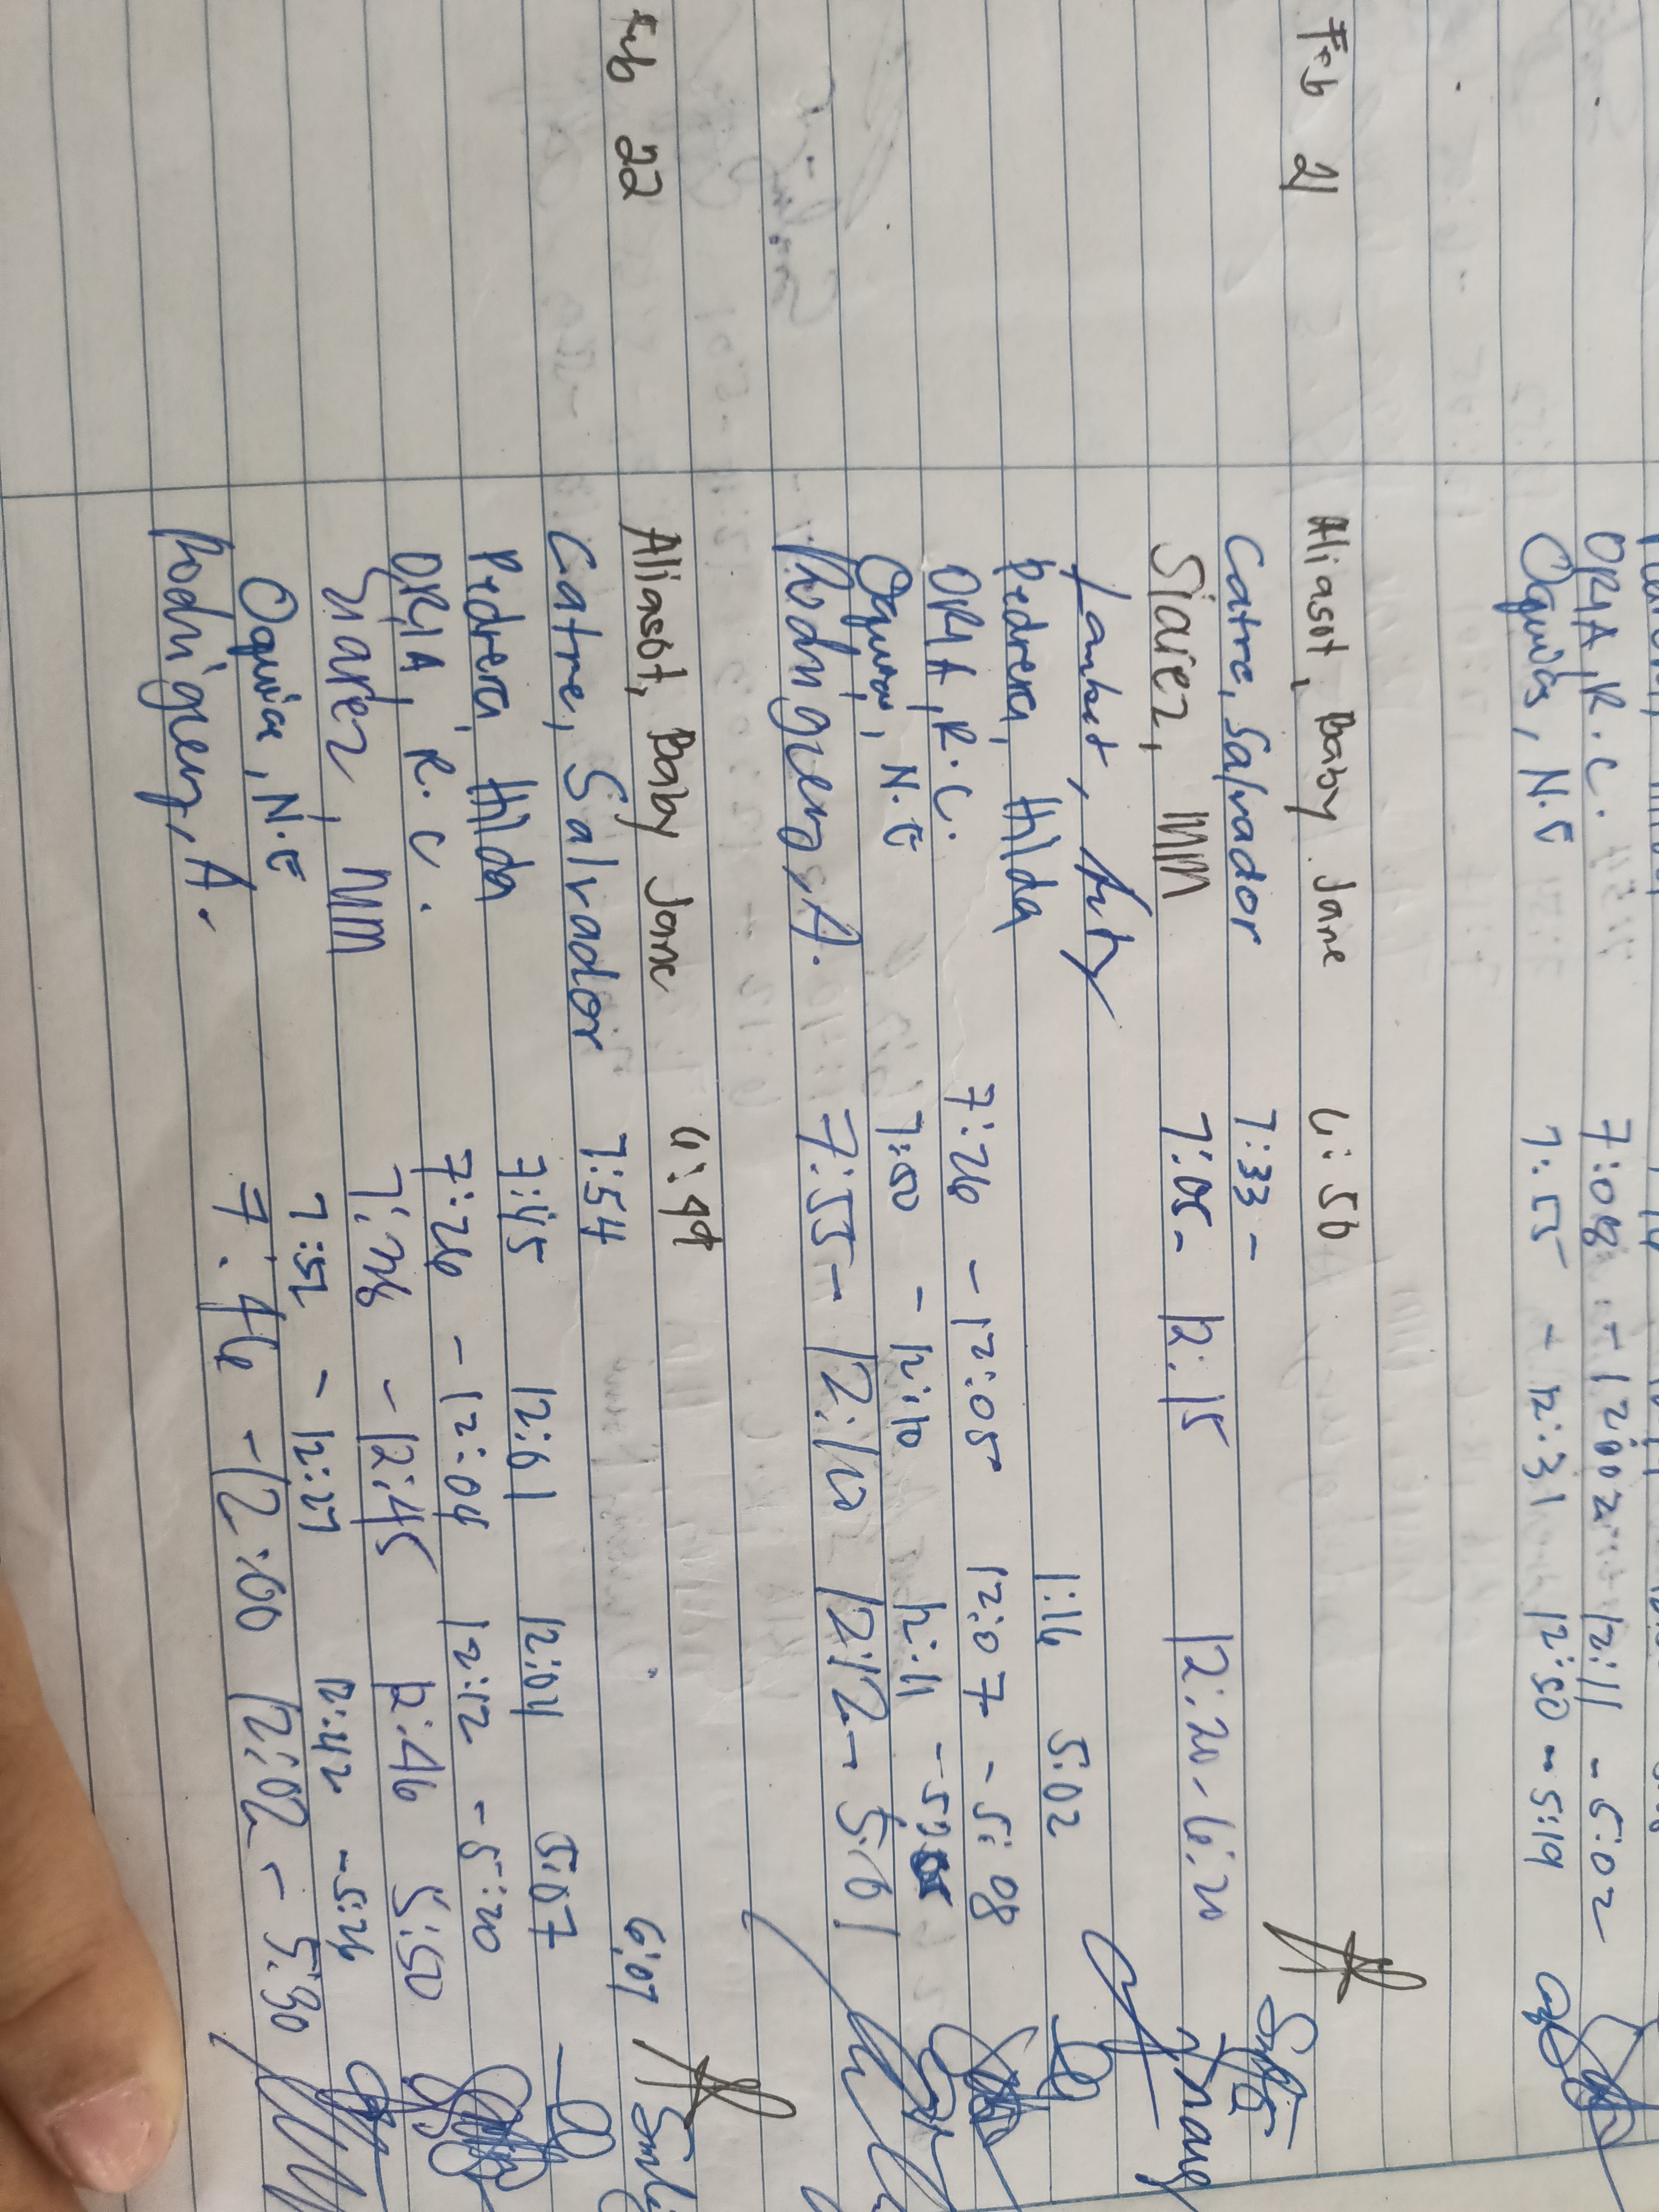 ORIA, R.C. 7:08 - 12:02 12:11 - 5:02
Oquias, N.E 7:55 - 12:31 12:50 - 5:19
Feb 21 Aliasot, Baby Jane 6:56
Catre, Salvador 7:33 -
Siarez, MM 7:05 - 12:15 12:20 - 6:20
Lambot,
Pedrera, Hilda 1:16 5:02
ORIA, R.C. 7:26 - 12:05 12:07 - 5:08
Oquias, N.E 7:50 - 12:10 12:11
Rodriguez, A. 7:55 - 12:10 12:12 - 5:01
Feb 22 Aliasot, Baby Jane 6:49
Catre, Salvador 7:54 6:07
Pedrera, Hilda 7:45 12:01 12:04 5:07
ORIA, R.C. 7:26 - 12:04 12:12 - 5:20
Siarez, MM 7:28 - 12:45 12:46 5:50
Oquias, N.E 7:52 - 12:27 12:42 - 5:26
Rodriguez, A. 7:46 - 12:00 12:02 - 5:30